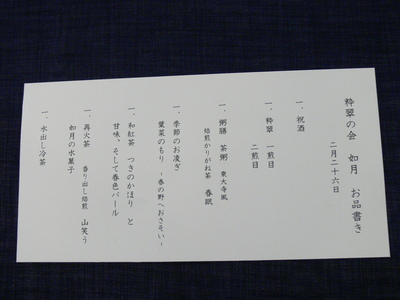 粋翠の会　如月　お品書き
二月二十六日
一、祝酒
一、粋翠　一煎目
二煎目
一、粥膳　茶粥　東大寺風
焙煎かりがね茶　春眠
一、季節のお凌ぎ
葉菜のもり　～春の野へおさそい～
一、和紅茶　つきのかほり　と
甘味、そして春色パール
一、再火茶　香り出し焙煎　山笑う
如月の水菓子
一、水出し冷茶